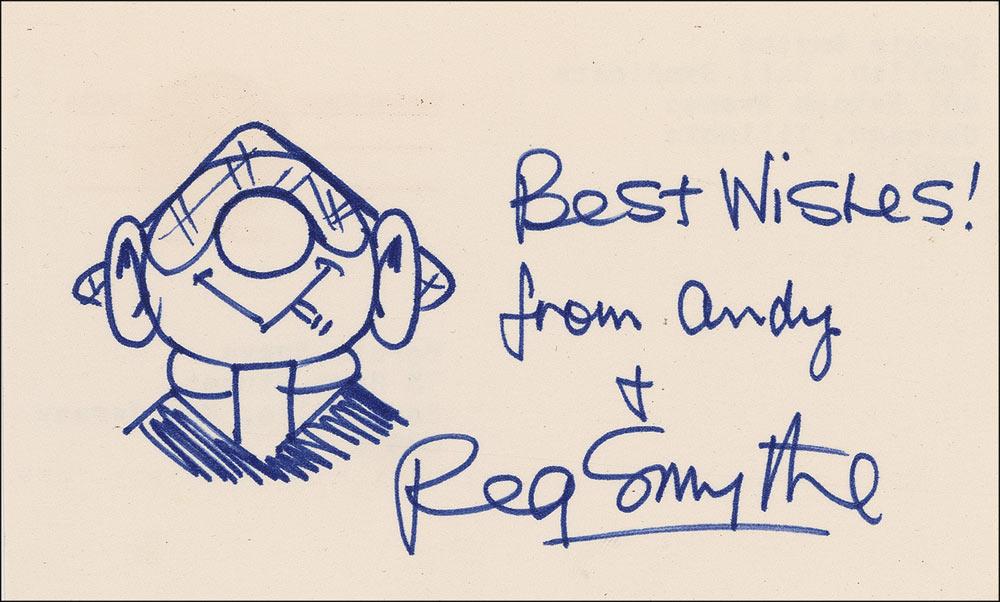 Best Wishes!
from Andy
+
Reg Smythe